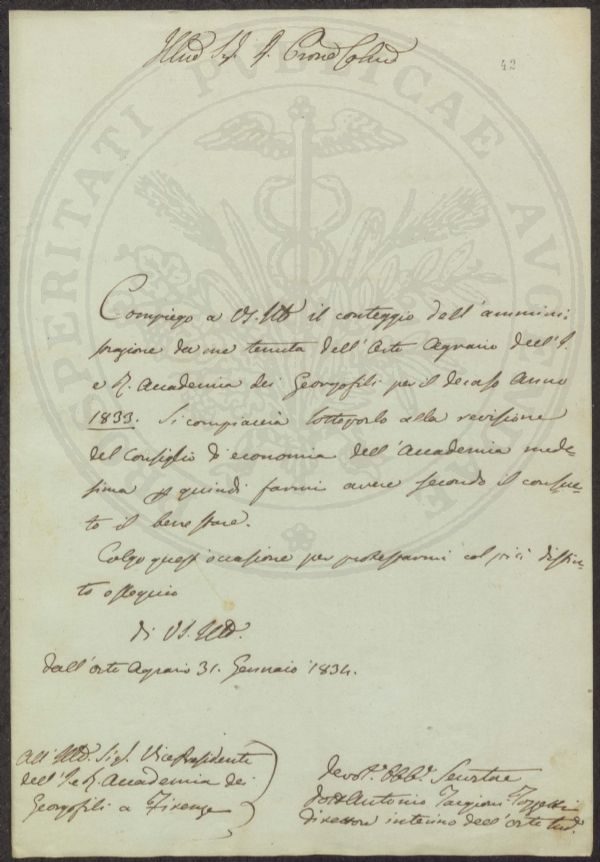 42
Illmo Sig. P. Prone Colmo
Compiego a VS. Illma il conteggio dell'ammini
strazione da me tenuta dell'Orto Agrario dell'I.
e R. Accademia dei Georgofili per il decorso Anno
1833. Si compiaccia sottoporlo alla revisione
del Consiglio d'economia dell'Accademia mede-
sima e quindi farmi avere secondo il consue-
to il benestare.
Colgo quest'occasione per protestarmi col più distin-
to ossequio
di VS. Illma.
Dall'orto Agrario 31. Gennaio 1834.
All'Illmo. Sig. Vice Presidente
dell'I. e R. Accademia dei
Georgofili a Firenze
devot. Obb. Servitore
Dott. Antonio Targioni Tozzetti
Direttore interino dell'Orto sud.
PROSPERITATI PUBLICAE AUGENDAE